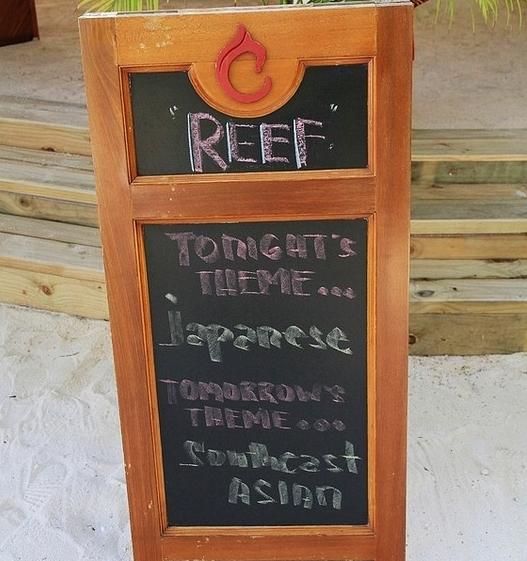 "REEF"
TONIGHT'S
THEME...
Japanese
TOMORROW'S
THEME...
Southeast
ASIAN